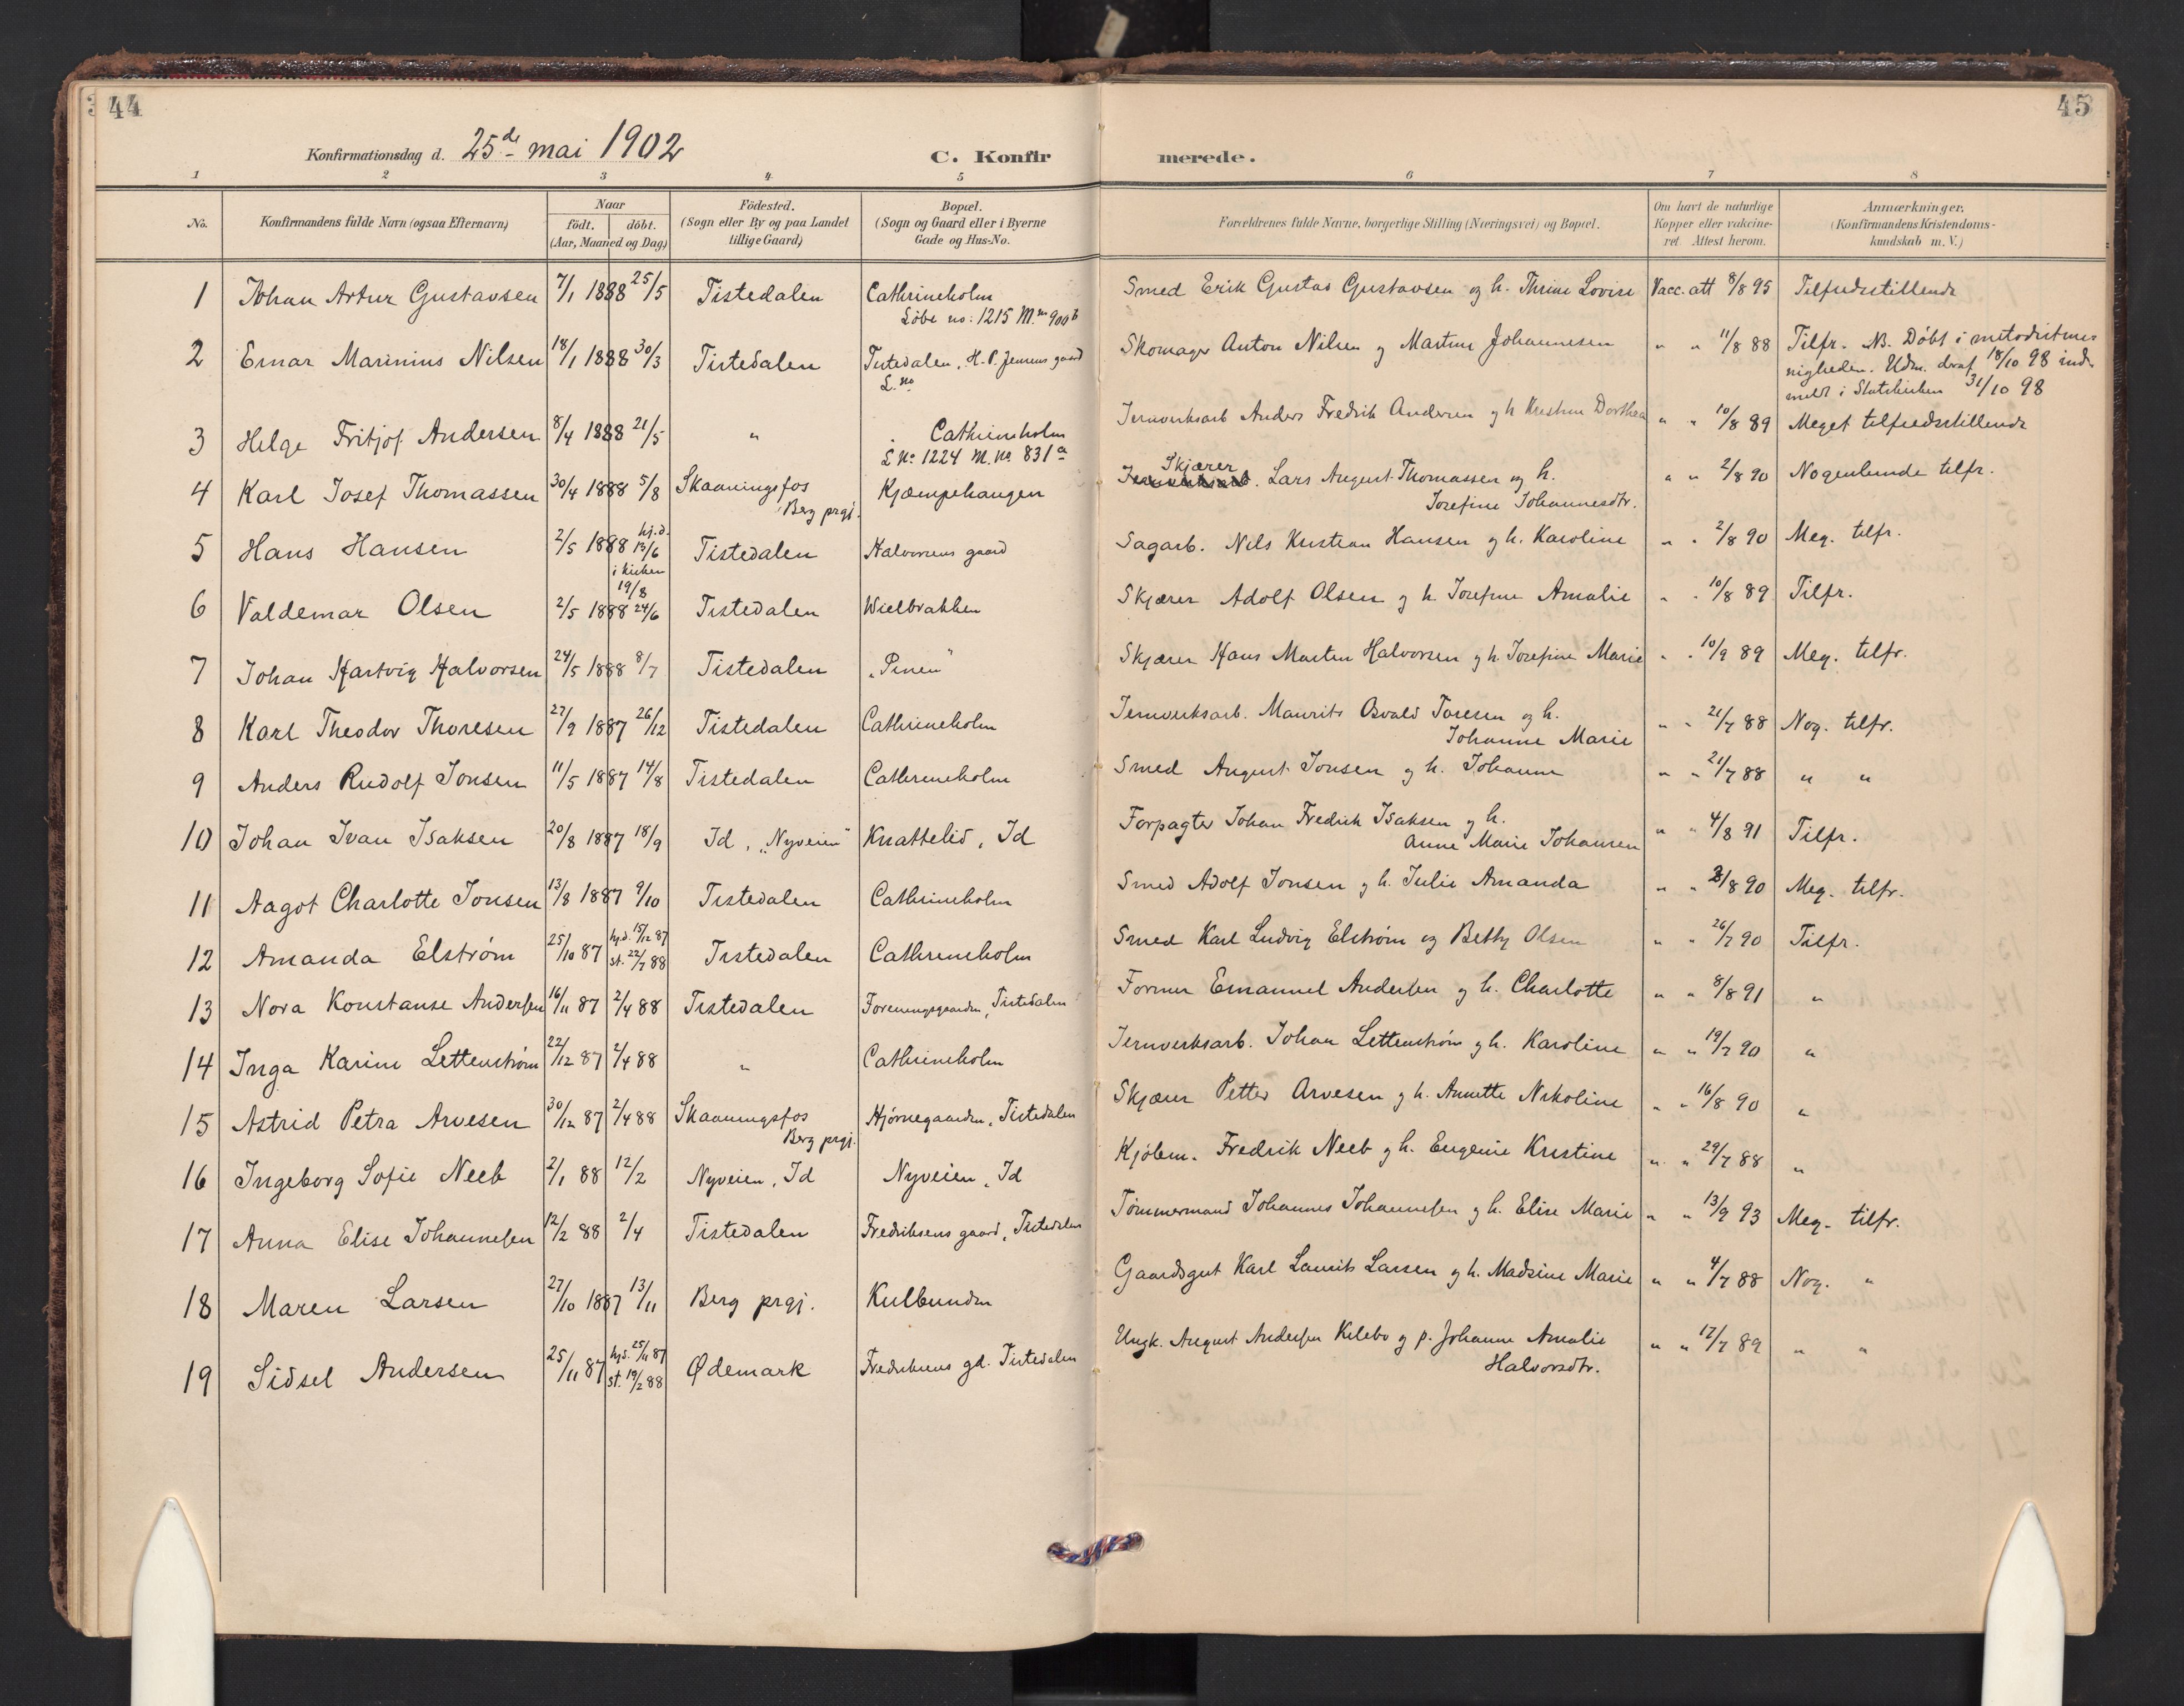 44
45
Konfirmationsdag d. 25de mai 1902
C. Konfirmerede.
1 2 3 4 5 6 7 8
No.
Konfirmandens fulde Navn (ogsaa Efternavn)
Naar
födt. döbt.
(Aar, Maaned og Dag)
Födested.
(Sogn eller By og paa Landet
tillige Gaard)
Bopæl.
(Sogn og Gaard eller i Byerne
Gade og Hus-No.
Forældrenes fulde Navne, borgerlige Stilling (Næringsvei) og Bopæl.
Om havt de naturlige
Kopper eller vakcine-
ret. Attest herom.
Anmærkninger.
(Konfirmandens Kristendoms-
kundskab m. V.)
1 Johan Artur Gustavsen 7/1 1888 25/5 Tistedalen Cathrineholm Smed Erik Gustav Gustavsen og h. Thrine Lovise Vacc. att 8/8 95 Tilfredsstillende
Löbe no: 1215 M.no 900b
2 Einar Marinius Nilsen 18/1 1888 30/3 Tistedalen Tistedalen, H. P. Jensens gaard Skomager Anton Nilsen og Martine Johannesen " " 11/8 88 Tilfr. NB. Döbt i metodistme-
L. no
nigheden. Udm. deraf 18/10 98 ind-
meldt i Statskirken 31/10 98
3 Helge Fritjof Andersen 8/4 1888 21/5 " Cathrineholm Jernverksarb Anders Fredrik Andersen og h Kristine Dorthea " " 10/8 89 Meget tilfredsstillende
L No 1224 M. no. 831a
4 Karl Josef Thomassen 30/4 1888 5/8 Skaaningsfos Kjæmpehaugen Skjærer Lars August Thomassen og h. " " 2/8 90 Nogenlunde tilfr.
Berg prgj. Josefine Johannesdtr.
5 Hans Hansen 2/5 1888 hj.d. 13/6 Tistedalen Halvorsens gaard Sagarb. Nils Kristian Hansen og h. Karoline " " 2/8 90 Meg. tilfr.
i kirken
19/8
6 Valdemar Olsen 2/5 1888 24/6 Tistedalen Wielbrakken Skjærer Adolf Olsen og h. Josefine Amalie " " 10/8 89 Tilfr.
7 Johan Hartvig Halvorsen 24/5 1888 8/7 Tistedalen "Pinen" Skjærer Hans Martin Halvorsen og h. Josefine Marie " " 10/9 89 Meg. tilfr.
8 Karl Theodor Thoresen 27/9 1887 26/12 Tistedalen Cathrineholm Jernverksarb. Maurits Osvald Toresen og h. " " 21/7 88 Nog. tilfr.
Johanne Marie
9 Anders Rudolf Jonsen 11/5 1887 14/8 Tistedalen Cathrineholm Smed August Jonsen og h. Johanne " " 21/7 88 " "
10 Johan Ivan Isaksen 20/8 1887 18/9 Id, "Nyveien" Knattelid, Id Forpagter Johan Fredrik Isaksen og h. " " 4/8 91 Tilfr.
Anne Marie Johansen
11 Aagot Charlotte Jonsen 13/8 1887 9/10 Tistedalen Cathrineholm Smed Adolf Jonsen og h. Julie Amanda " " /8 90 Meg. tilfr.
12 Amanda Elström 25/10 87 hj.d. 15/12 87 Tistedalen Cathrineholm Smed Karl Ludvig Elström og Betty Olsen " " 26/7 90 Tilfr.
st. 22/7 88
13 Nora Konstanse Andersen 16/11 87 2/4 88 Tistedalen Foreningsgaarden, Tistedalen Former Emanuel Andersen og h. Charlotte " " 8/8 91 "
14 Inga Karine Lettenström 22/12 87 2/4 88 " Cathrineholm Jernverksarb. Johan Lettenström og h. Karoline " " 19/7 90 "
15 Astrid Petra Arvesen 30/12 87 2/4 88 Skaaningsfos Hjörnegaarden, Tistedalen Skjærer Petter Arvesen og h. Annette Nikoline " " 16/8 90 "
Berg prgj.
16 Ingeborg Sofie Neeb 2/1 88 12/2 Nyveien, Id Nyveien, Id Kjöbm. Fredrik Neeb og h. Eugenie Kristine " " 29/7 88 "
17 Anna Elise Johannesen 12/2 88 2/4 Tistedalen Fredriksens gaard, Tistedalen Tömmermand Johannes Johannesen og h. Elise Marie " " 13/9 93 Meg. tilfr.
18 Maren Larsen 27/10 1887 13/11 Berg prgj. Kulbunden Gaardsgut Karl Laurits Larsen og h. Madsine Marie " " 4/7 88 Nog. "
19 Sidsel Andersen 25/11 87 hjd. 25/11 87 Ødemark Fredriksens gd. Tistedalen Ungk. August Andersen Kilebo og p. Johanne Amalie " " 17/7 89 " "
st. 19/2 88 Halvorsdtr.